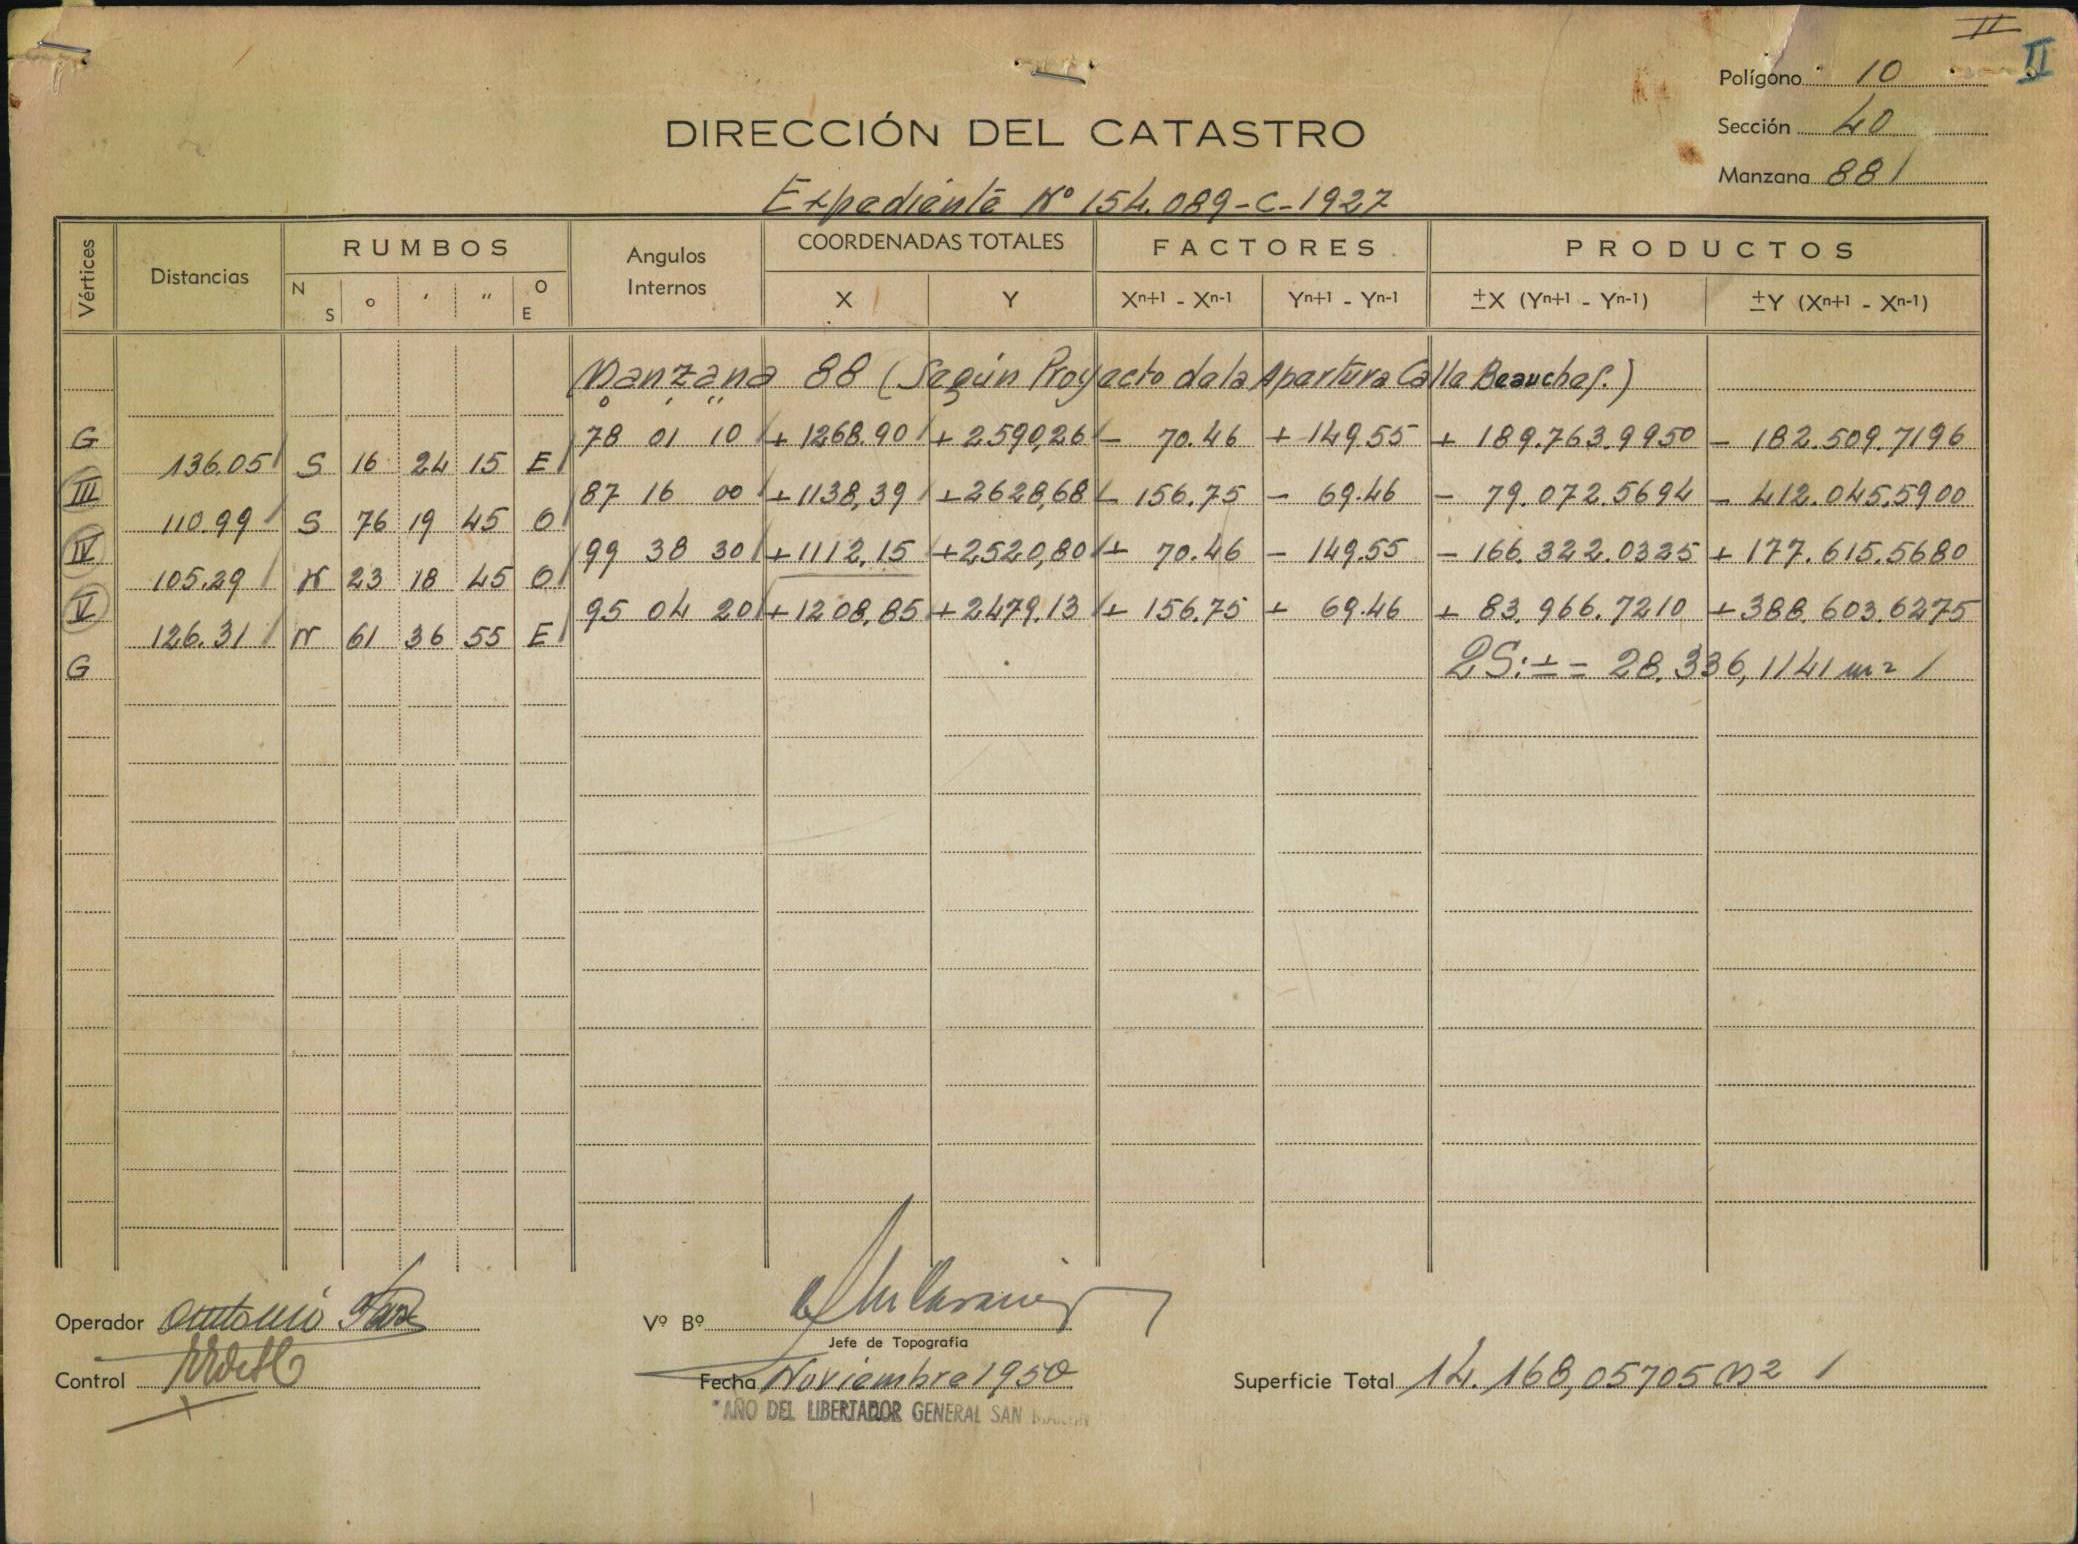 II
II
Polígono 10
DIRECCIÓN DEL CATASTRO
Sección 40
Manzana 88 /
Expediente Nº 154.089-C-1927
Vértices Distancias RUMBOS Angulos Internos COORDENADAS TOTALES FACTORES PRODUCTOS
N S o ' " O E X Y Xn+1 - Xn-1 Yn+1 - Yn-1 ±X (Yn+1 - Yn-1) ±Y (Xn+1 - Xn-1)
Manzana 88 (Según Proyecto de la Apertura Calle Beauchef.)
o ' "
G 78 01 10 +1268.90 +2590,26 - 70.46 + 149.55 + 189.763.9950 - 182.509.7196
136.05 S 16 24 15 E
III 87 16 00 +1138,39 +2628,68 - 156.75 - 69.46 - 79.072.5694 - 412.045.5900
110.99 S 76 19 45 O
IV 99 38 30 +1112,15 +2520,80 + 70.46 - 149.55 - 166.322.0325 + 177.615.5680
105.29 N 23 18 45 O
V 95 04 20 +1208,85 +2479.13 + 156.75 + 69.46 + 83.966.7210 + 388.603.6275
126.31 N 61 36 55 E
G 2S:±= 28.336,1141 m2 /
Operador Antonio
Vº Bº
Jefe de Topografía
Control
Fecha Noviembre 1950
Superficie Total 14.168,05705 m2 /
"AÑO DEL LIBERTADOR GENERAL SAN MARTIN